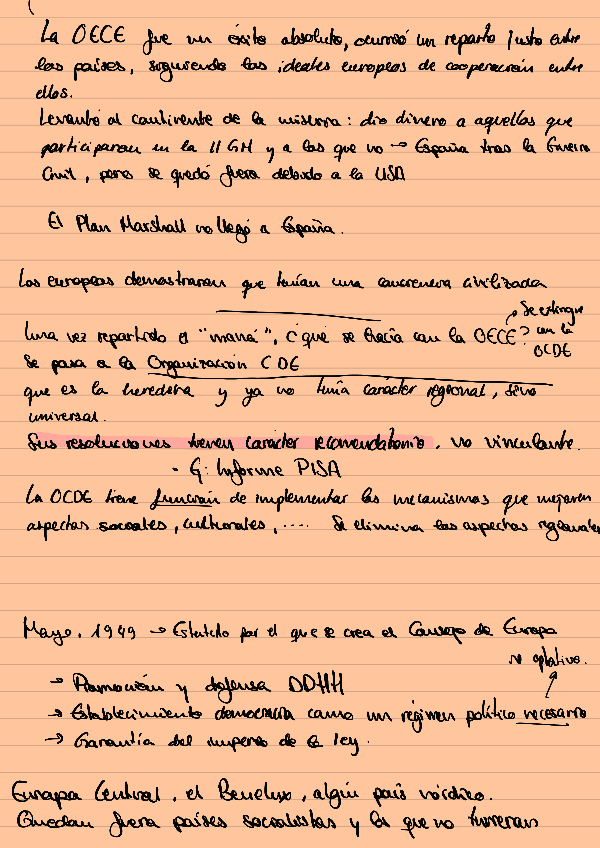 La OECE fue un éxito absoluto, ocurrió un reparto justo entre
los países, siguiendo los ideales europeos de cooperación entre
ellos.
Levantó al continente de la miseria: dio dinero a aquellos que
participaron en la II GM y a los que no → España tras la Guerra
Civil, pero se quedó fuera debido a la USA
El Plan Marshall no llegó a España.
Los europeos demostraron que tenían una conciencia civilizada
Una vez repartido el "maná", ¿qué se hacía con la OECE?
Se extingue
con la
OCDE
Se pasa a la Organización CDE
que es la heredera y ya no tenía carácter regional, sino
universal.
Sus resoluciones tienen carácter recomendatorio, no vinculante.
· Ej: Informe PISA
La OCDE tiene función de implementar los mecanismos que mejoren
aspectos sociales, culturales, .... Se elimina los aspectos regionales
Mayo, 1949 → Estatuto por el que se crea el Consejo de Europa
no optativo.
→ Promoción y defensa DDHH
→ Establecimiento democracia como un régimen político necesario
→ Garantía del imperio de la ley.
Europa Central, el Benelux, algún país nórdico.
Quedan fuera países socialistas y los que no tuvieran